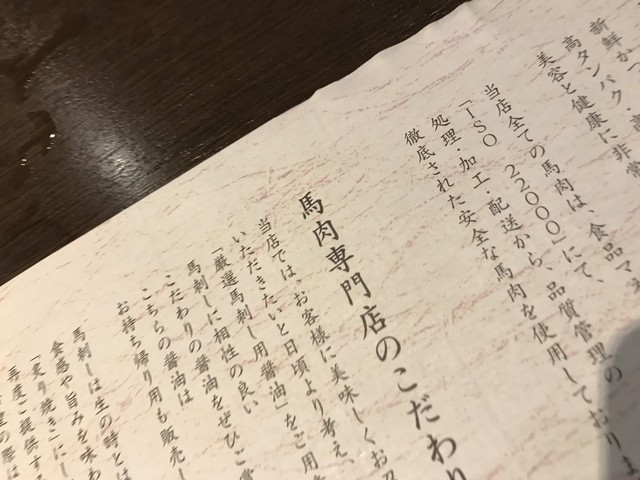 新鮮かつ
高タンパク・高
美容と健康に非常
当店全ての馬肉は、食品マネ
「ISO 22000」にて、
処理・加工・配送から、品質管理の
徹底された安全な馬肉を使用しておりま
馬肉専門店のこだわり
当店では、お客様に美味しくお召
いただきたいと日頃より考え、
「厳選馬刺し用醤油」をご用意
馬刺しに相性の良い
こだわりの醤油をぜひご賞
こちらの醤油は
お持ち帰り用も販売し
馬刺しは生の時とは
食感や旨みを味わ
「炙り焼き」にし
再度ご提供する